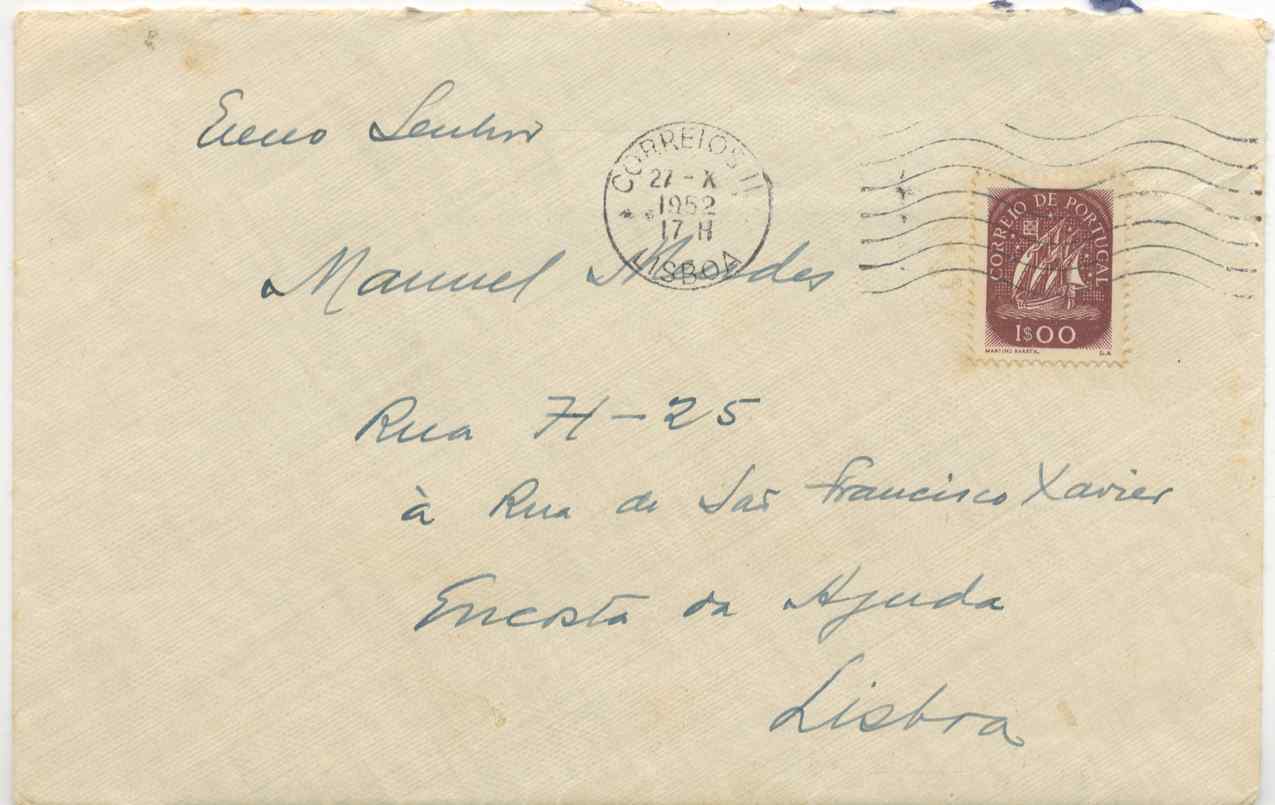 Exmo Senhor
CORREIOS
27 - X
1952
17 H
LISBOA
Manuel Mendes
CORREIO DE PORTUGAL
1$00
MARTINS BARATA
Rua H - 25
à Rua de São Francisco Xavier
Encosta da Ajuda
Lisboa